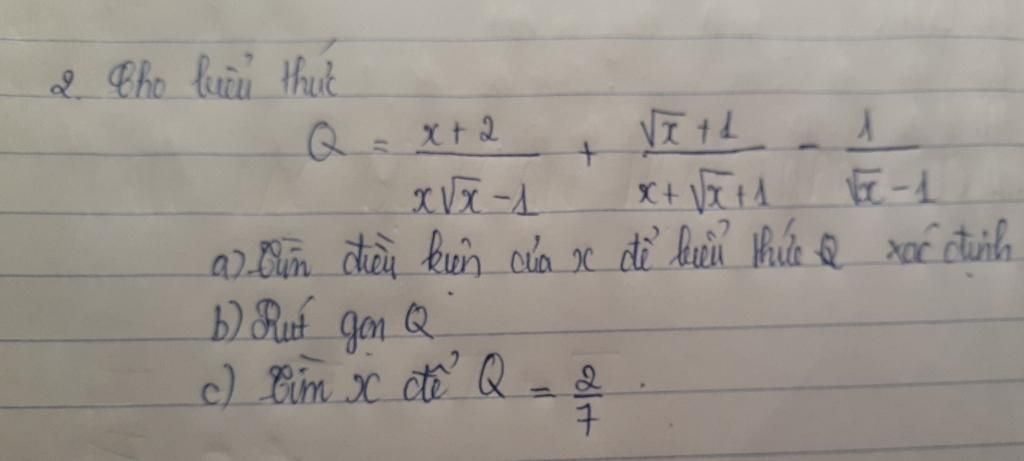 2. Cho biểu thức
Q = \frac{x+2}{x\sqrt{x}-1} + \frac{\sqrt{x}+1}{x+\sqrt{x}+1} - \frac{1}{\sqrt{x}-1}
a) Tìm điều kiện của x để biểu thức Q xác định
b) Rút gọn Q
c) Tìm x để Q = \frac{2}{7}.